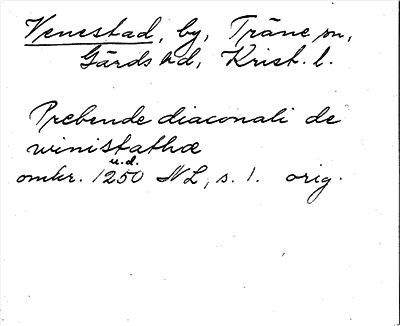 Venestad, by, Träne sn,
Gärds hd, Krist. l.
Prebende diaconali de
winistathæ
u.d.
omkr. 1250 NL, s. 1. orig.